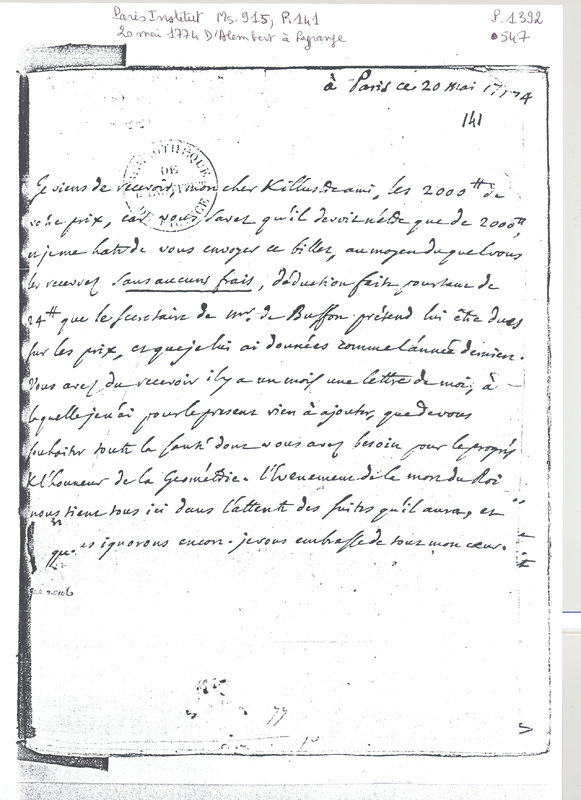 Paris Institut Ms. 915, P. 141
P. 1392
20 mai 1774 D'Alembert à Lagrange
547
à Paris ce 20 mai 1774
141
BIBLIOTHEQUE DE L'INSTITUT DE FRANCE
Je viens de recevoir, mon cher & illustre ami, les 2000 ₶ de
votre prix, car vous savez qu'il devoit n'être que de 2000 ₶,
et je me hate de vous envoyer ce billet, au moyen duquel vous
les recevrez sans aucuns frais, déduction faite pourtant de
24 ₶ que le secretaire de mr. de Buffon prétend lui être dues
sur les prix, et que je lui ai données comme l'année derniere.
Vous avez du recevoir il y a un mois une lettre de moi, à
laquelle je n'ai pour le present rien à ajouter, que de vous
souhaiter toute la santé dont vous avez besoin pour le progrès
& l'honneur de la Geométrie. l'évenement de la mort du Roi
nous tient tous ici dans l'attente des suites qu'il aura, et
que nous ignorons encore. je vous embrasse de tout mon cœur.
que nous
77